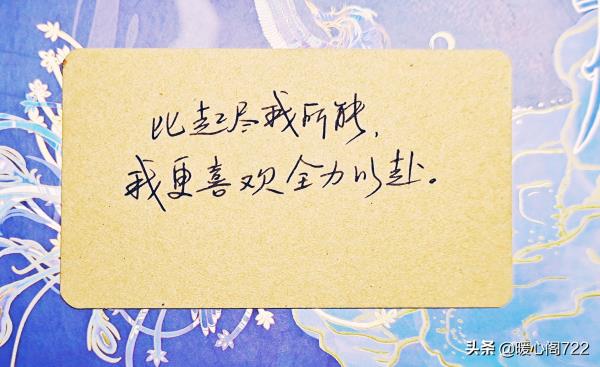 比起尽我所能，
我更喜欢全力以赴。
头条 @暖心阁722